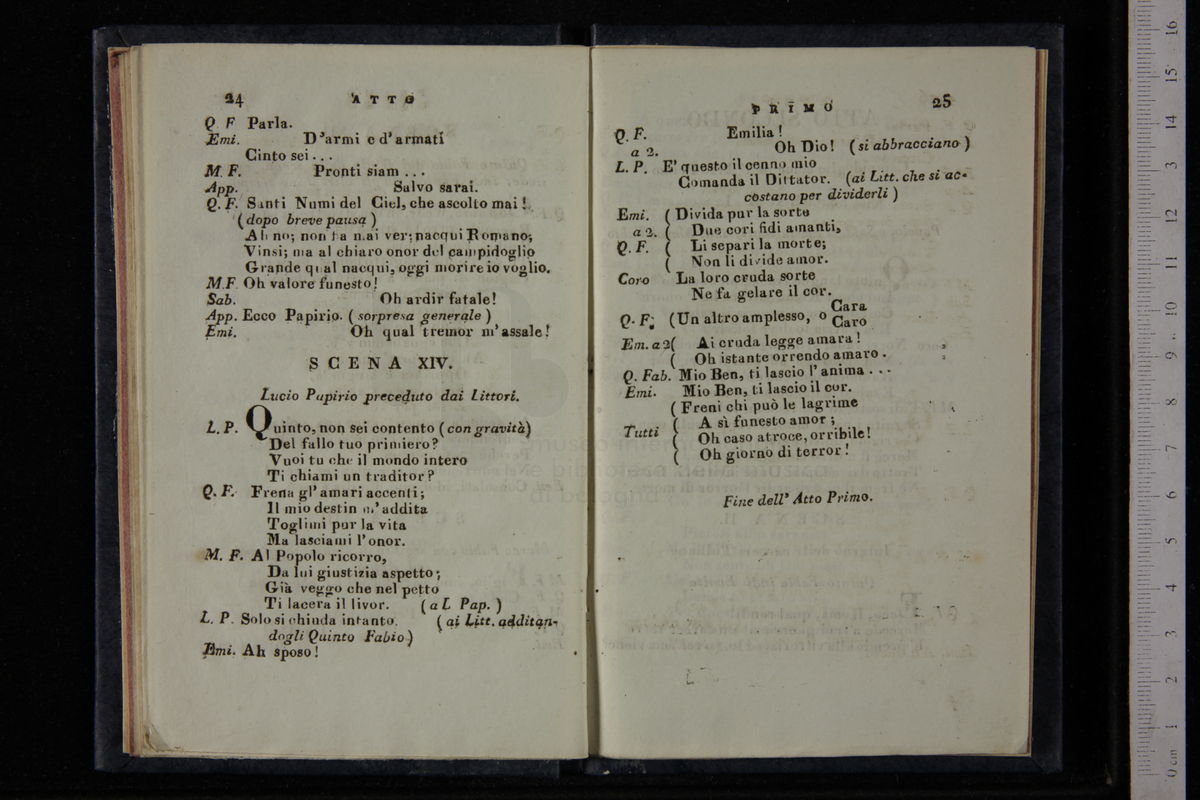 24 ATTO
Q F Parla.
Emi. D'armi e d'armati
Cinto sei...
M. F. Pronti siam...
App. Salvo sarai.
Q. F. Santi Numi del Ciel, che ascolto mai!
(dopo breve pausa)
Ah no; non fa mai ver; nacqui Romano;
Vinsi; ma al chiaro onor del campidoglio
Grande qual nacqui, oggi morire io voglio.
M.F. Oh valore funesto!
Sab. Oh ardir fatale!
App. Ecco Papirio. (sorpresa generale)
Emi. Oh qual tremor m'assale!
SCENA XIV.
Lucio Papirio preceduto dai Littori.
L. P. Quinto, non sei contento (con gravità)
Del fallo tuo primiero?
Vuoi tu che il mondo intero
Ti chiami un traditor?
Q. F. Frena gl'amari accenti;
Il mio destin m'addita
Toglimi pur la vita
Ma lasciami l'onor.
M. F. Al Popolo ricorro,
Da lui giustizia aspetto;
Già veggo che nel petto
Ti lacera il livor. (a L Pap.)
L. P. Solo si chiuda intanto. (ai Litt. additan-
dogli Quinto Fabio)
Emi. Ah sposo!
PRIMO 25
Q. F. Emilia!
a 2. Oh Dio! (si abbracciano)
L. P. E' questo il cenno mio
Comanda il Dittator. (ai Litt. che si ac-
costano per dividerli)
Emi. ( Divida pur la sorte
a 2. ( Due cori fidi amanti,
Q. F. ( Li separi la morte;
( Non li divide amor.
Coro La loro cruda sorte
Ne fa gelare il cor.
Q. F. (Un altro amplesso, o Cara
Caro
Em. a 2( Ai cruda legge amara!
( Oh istante orrendo amaro.
Q. Fab. Mio Ben, ti lascio l'anima...
Emi. Mio Ben, ti lascio il cor.
( Freni chi può le lagrime
Tutti ( A sì funesto amor;
( Oh caso atroce, orribile!
( Oh giorno di terror!
Fine dell' Atto Primo.
0 cm 1 2 3 4 5 6 7 8 9 10 11 12 13 14 15 16